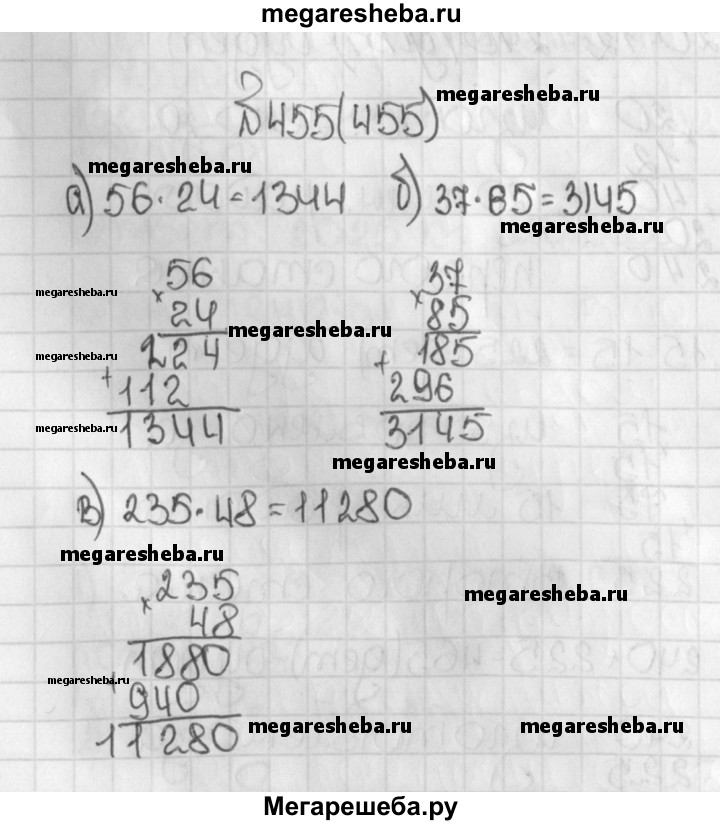 megaresheba.ru
№455(455)
megaresheba.ru
megaresheba.ru
а) 56·24=1344 б) 37·85=3145
megaresheba.ru
56 37
megaresheba.ru
× 24 × 85
megaresheba.ru
megaresheba.ru
224 185
+ 112 + 296
megaresheba.ru
1344 3145
megaresheba.ru
в) 235·48=11280
megaresheba.ru
× 235
megaresheba.ru
48
1880
megaresheba.ru
+ 940
megaresheba.ru
megaresheba.ru
11280
Мегарешеба.ру